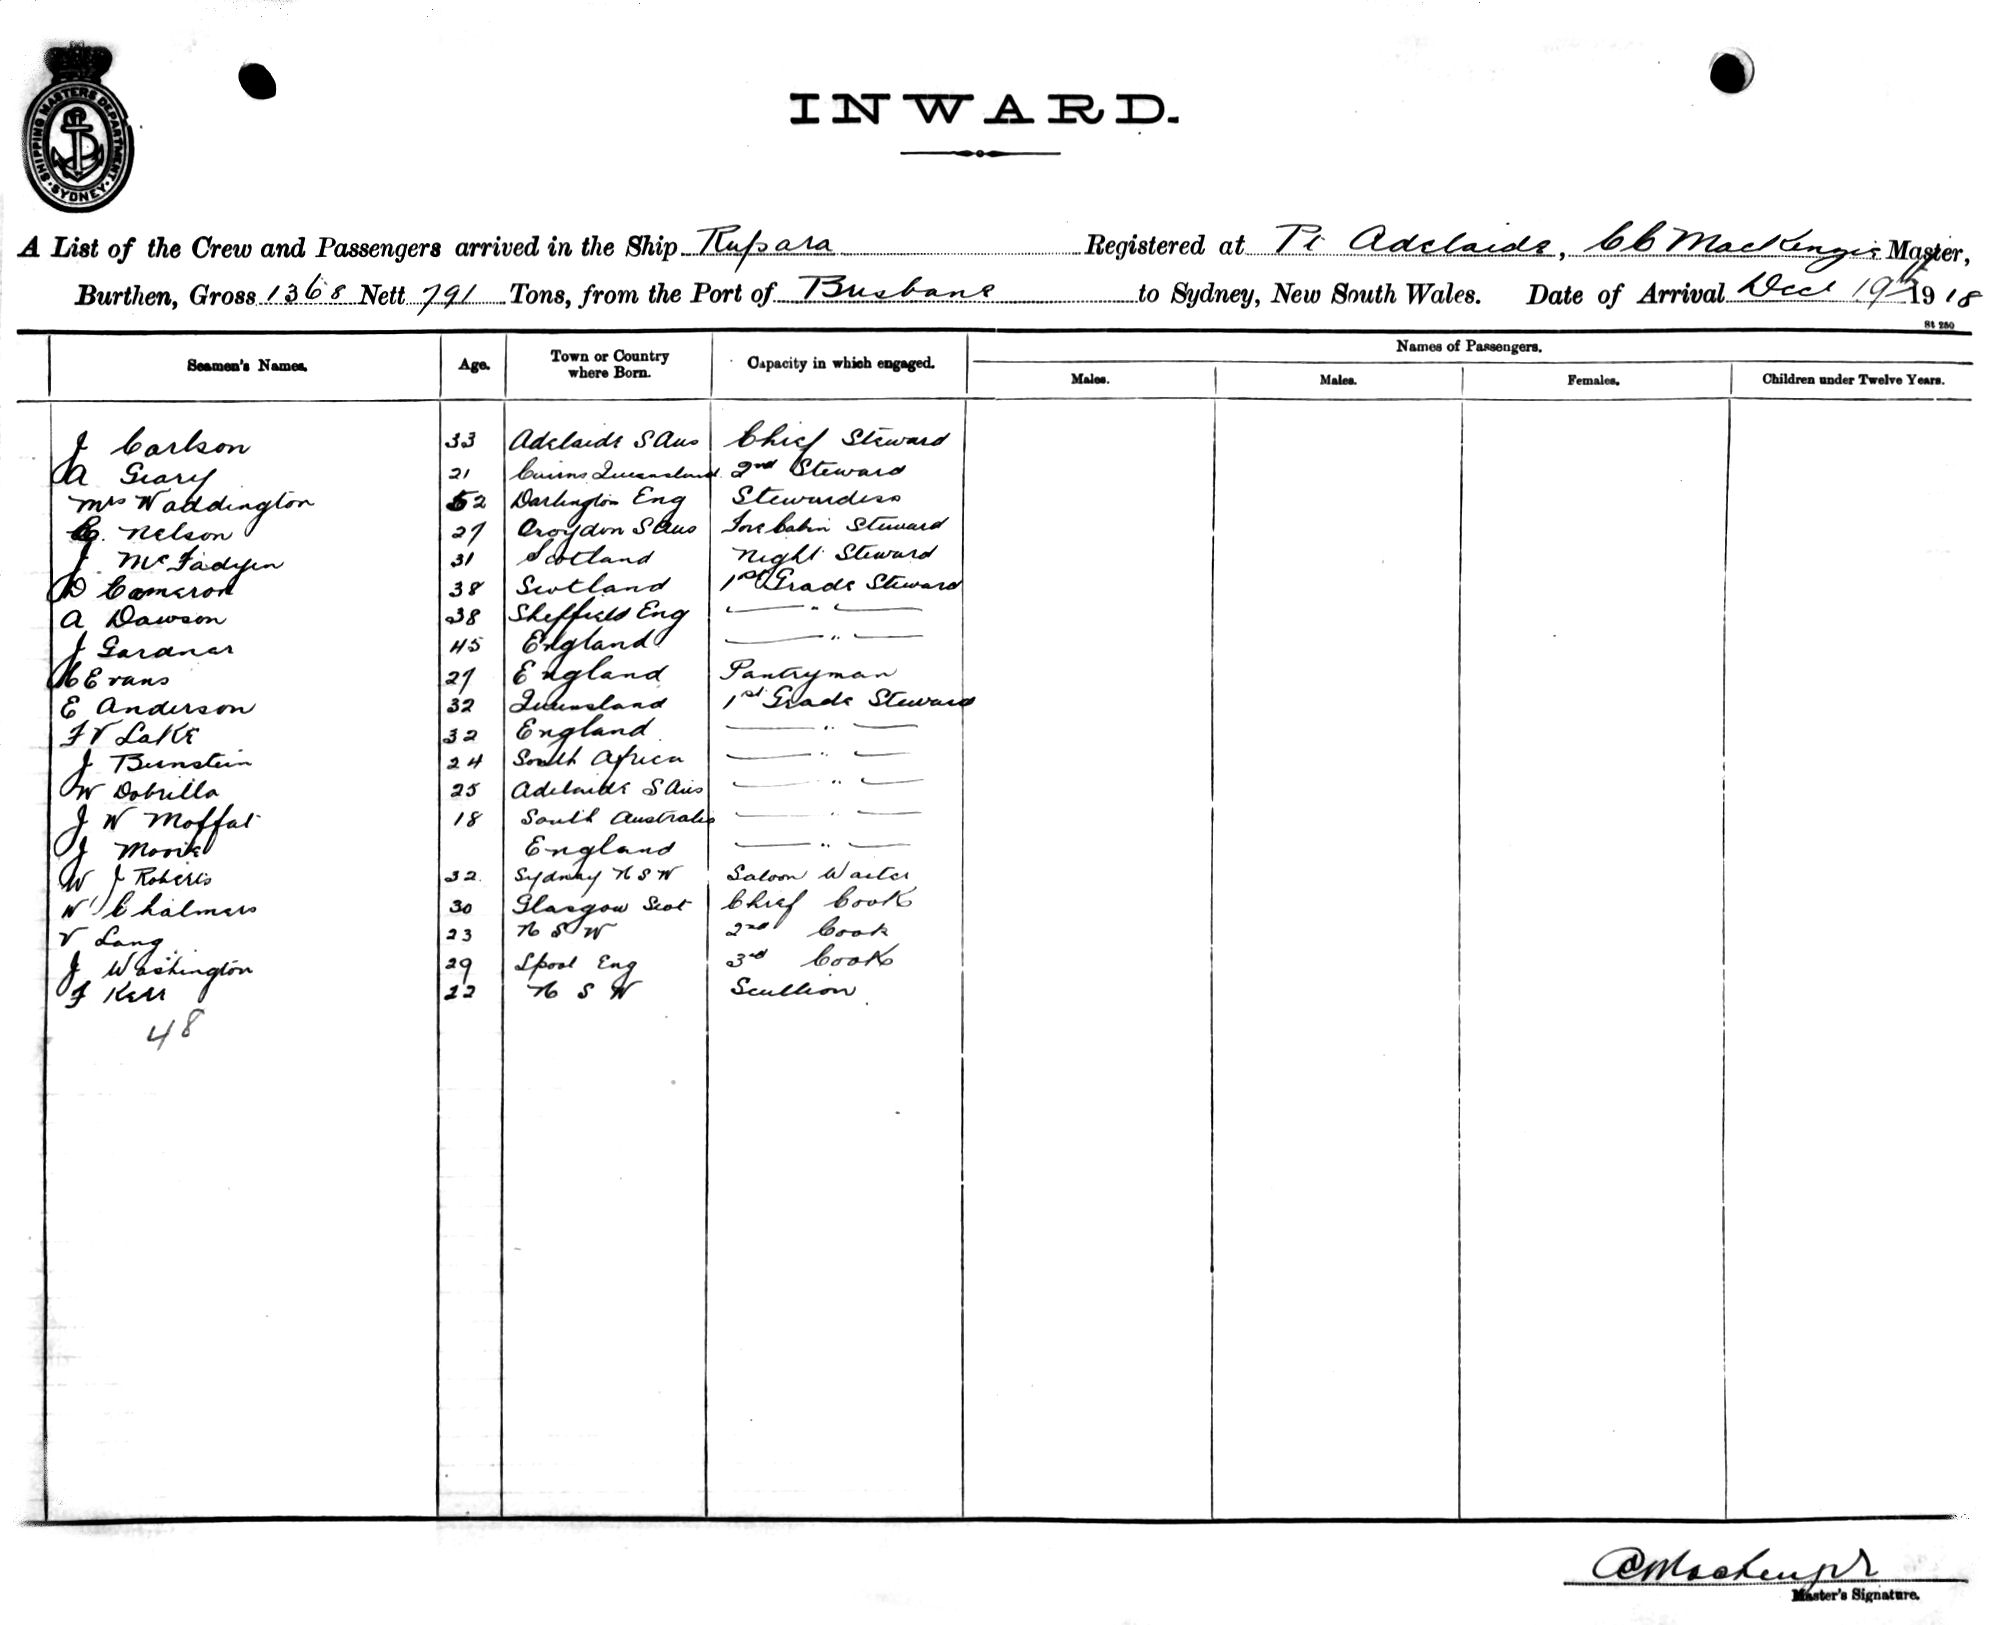 SHIPPING MASTERS DEPARTMENT
SYDNEY
INWARD.
A List of the Crew and Passengers arrived in the Ship Rupara Registered at Pt Adelaide, CC MacKenzie Master,
Burthen, Gross 1368 Nett 791 Tons, from the Port of Brisbane to Sydney, New South Wales. Date of Arrival Dec 19th 1918
St 250
Seamen's Names. Age. Town or Country where Born. Capacity in which engaged. Names of Passengers.
Males. Males. Females. Children under Twelve Years.
J Carlson 33 Adelaide S Aus Chief Steward
A Geary 21 Cairns Queensland 2nd Steward
Mrs Waddington 52 Darlington Eng Stewardess
C. Nelson 27 Croydon S Aus Fore Cabin Steward
J McFadyen 31 Scotland Night Steward
D Cameron 38 Scotland 1st Grade Steward
A Dawson 38 Sheffield Eng — " —
J Gardner 45 England — " —
C Evans 27 England Pantryman
E Anderson 32 Queensland 1st Grade Steward
F V Lake 32 England — " —
J Bernstein 24 South Africa — " —
W Dobrilla 25 Adelaide S Aus — " —
J W Moffat 18 South Australia — " —
J Moore England — " —
W J Roberts 32 Sydney N S W Saloon Waiter
W Chalmers 30 Glasgow Scot Chief Cook
V Lang 23 N S W 2nd Cook
J Washington 29 Lpool Eng 3rd Cook
F Kerr 22 N S W Scullion
48
CC MacKenzie
Master's Signature.